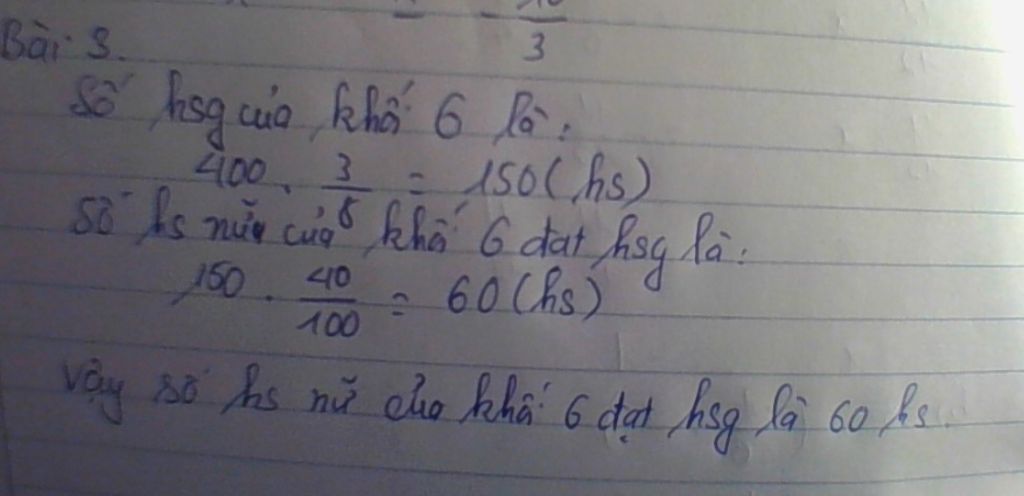 10
= -
3
Bài 3.
Số hsg của khối 6 là:
400 . 3/8 = 150 (hs)
Số hs nữ của khối 6 đạt hsg là:
150 . 40/100 = 60 (hs)
Vậy số hs nữ của khối 6 đạt hsg là 60 hs.